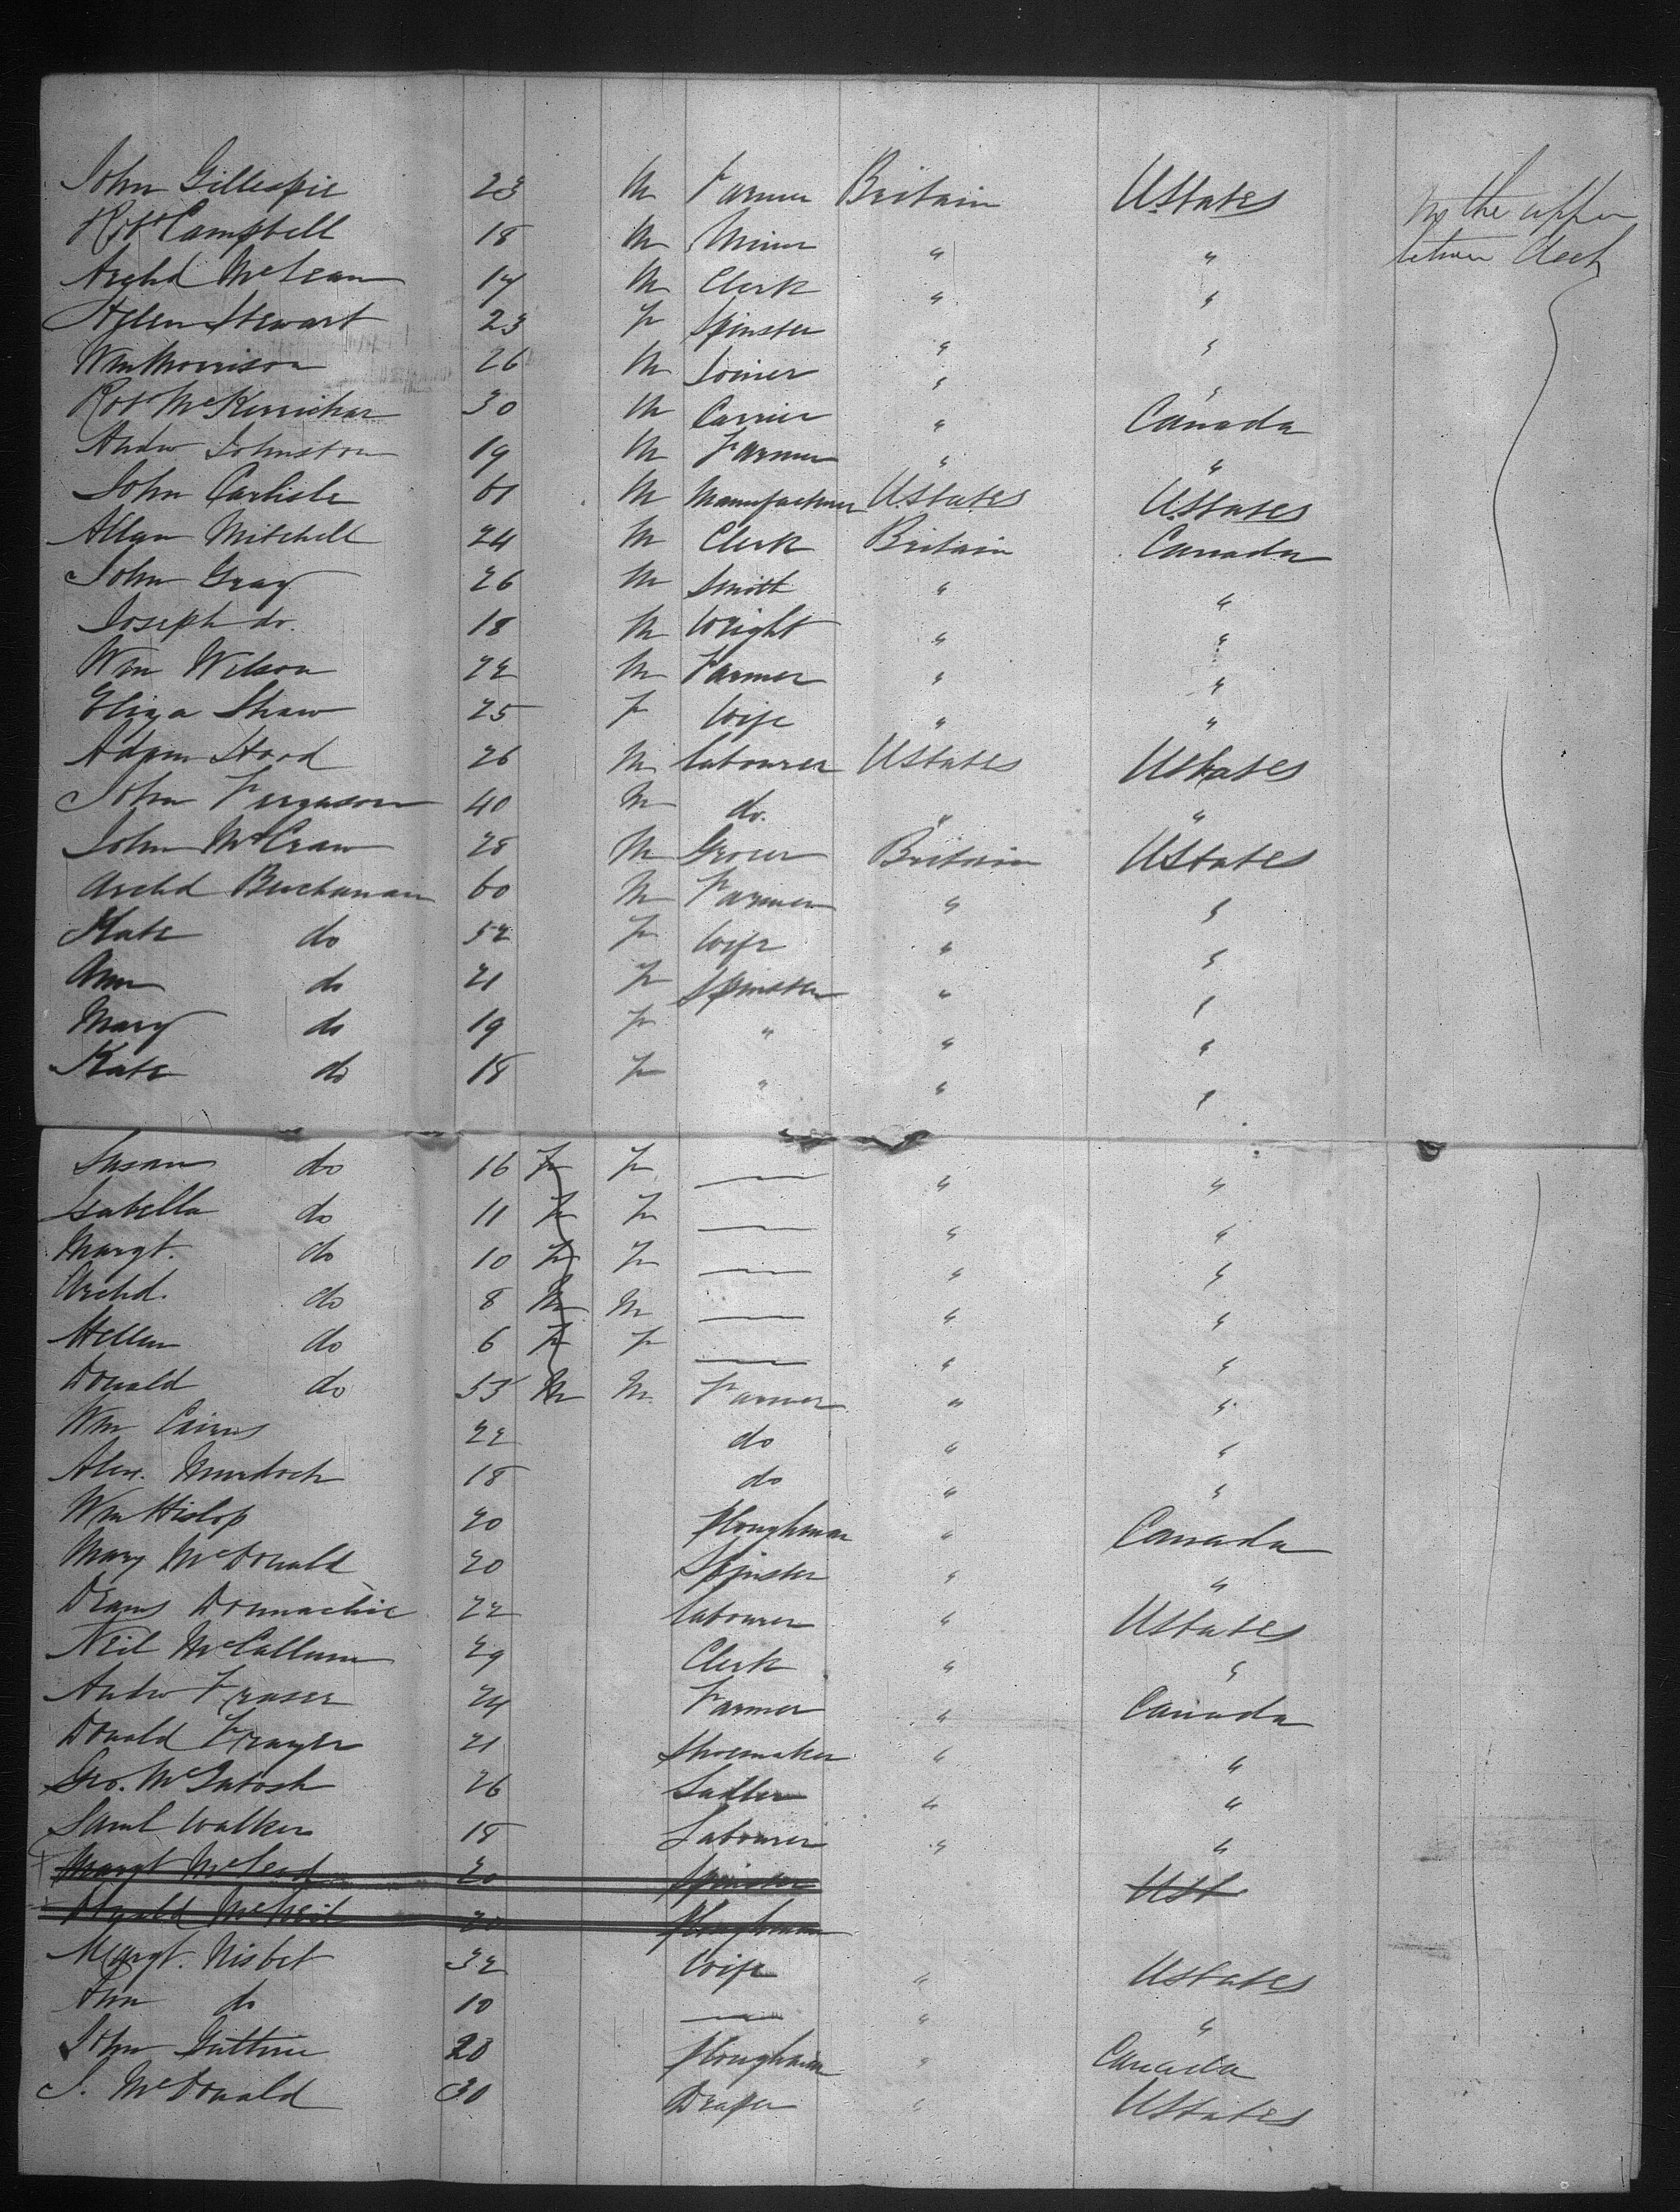 John Gillespie 23 M Farmer Britain UStates In the upper
Robt Campbell 18 M Miner " " between deck
Archd McLean 17 M Clerk " "
Helen Stewart 23 F Spinster " "
Wm Morrison 26 M Joiner " "
Robt McKerrichar 30 M Carrier " Canada
Andw Johnston 19 M Farmer " "
John Carlisle 61 M Manufacturer UStates UStates
Allan Mitchell 24 M Clerk Britain Canada
John Gray 26 M Smith " "
Joseph do. 18 M Wright " "
Wm Wilson 22 M Farmer " "
Eliza Shaw 25 F Wife " "
Adam Hood 26 M labourer UStates UStates
John Ferguson 40 M do. " "
John McCraw 28 M Grocer Britain UStates
Archd Buchanan 60 M Farmer " "
Kate do 52 F Wife " "
Ann do 21 F Spinster " "
Mary do 19 F " " "
Kate do 18 F " " "
Susan do 16 F F — " "
Isabella do 11 F F — " "
Margt. do 10 F F — " "
Archd. do 8 M M — " "
Hellen do 6 F F — " "
Donald do 55 M M. Farmer " "
Wm Cairns 22 do " "
Alex. Murdoch 18 do " "
Wm Hislop 20 Ploughman " Canada
Mary McDonald 20 Spinster " "
Deans Donnachie 22 labourer " UStates
Neil McCallum 29 Clerk " "
Andw Fraser 24 Farmer " Canada
Donald Frazer 21 Shoemaker " "
Geo. McIntosh 26 Sadler " "
Saml Walker 18 Labourer " "
Margt McLeod 20 Spinster USt
McNeil 20 Ploughman
Margt. Nisbet 32 Wife " UStates
Ann do 10 — " "
John Guthrie 20 Ploughman " Canada
J. McDonald 30 Draper " UStates